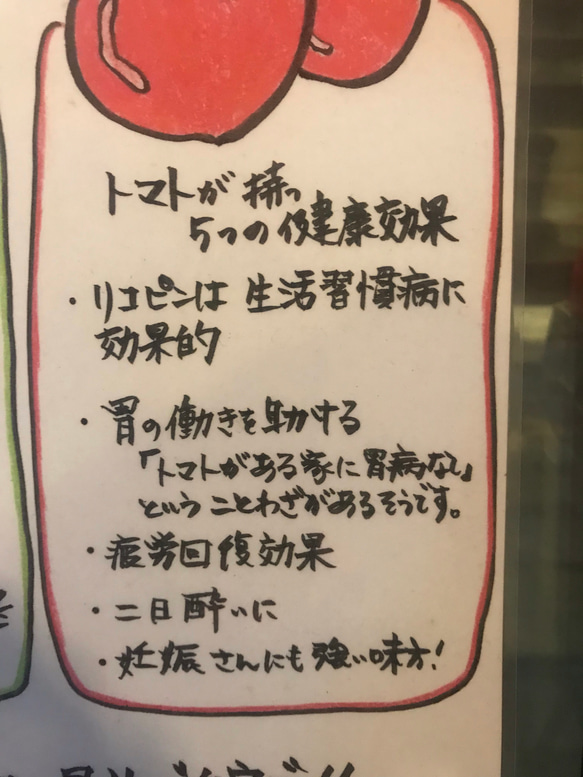 トマトが持つ
5つの健康効果
・リコピンは生活習慣病に
効果的
・胃の働きを助ける
「トマトがある家に胃病なし」
ということわざがあるそうです。
・疲労回復効果
・二日酔いに
・妊娠さんにも強い味方!